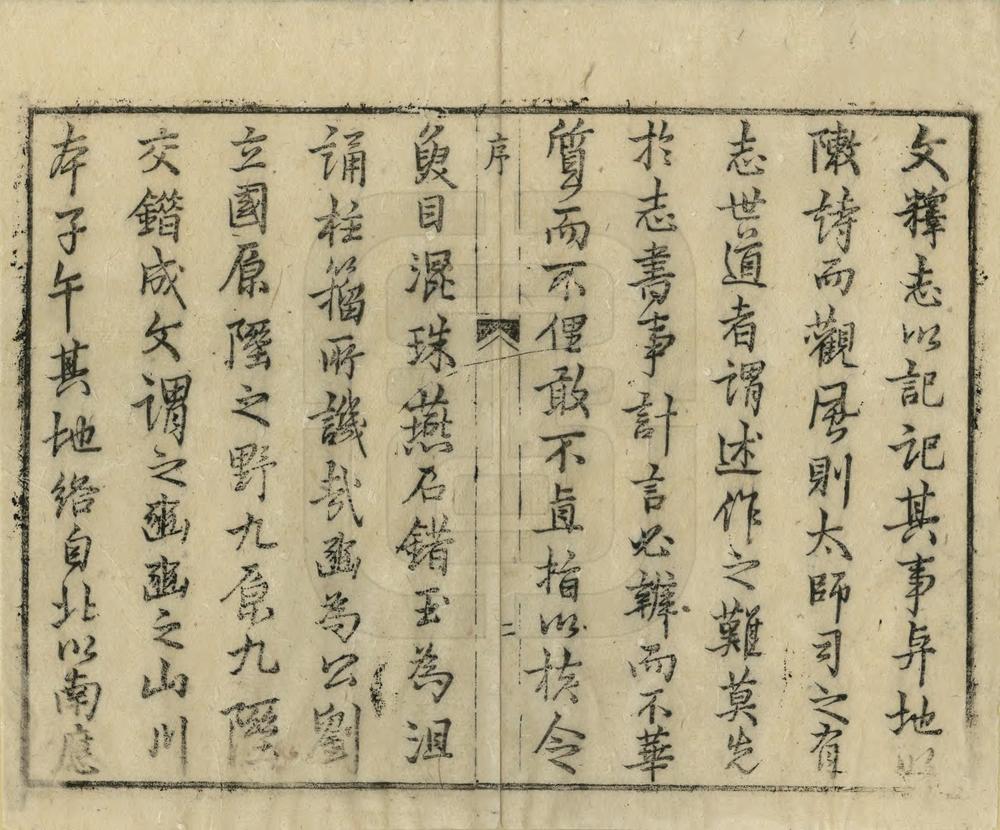 文釋志以記記其事與地以
陳詩而觀風則太師司之有
志世道者謂述作之難莫先
於志書事計言必辨而不華
質而不俚敢不直指以核令
序
二
魚目混珠燕石錯玉為沮
誦柱籀所譏哉豳為公劉
立國原隰之野九原九隰
交錯成文謂之豳豳之山川
本子午其地絡自北以南應